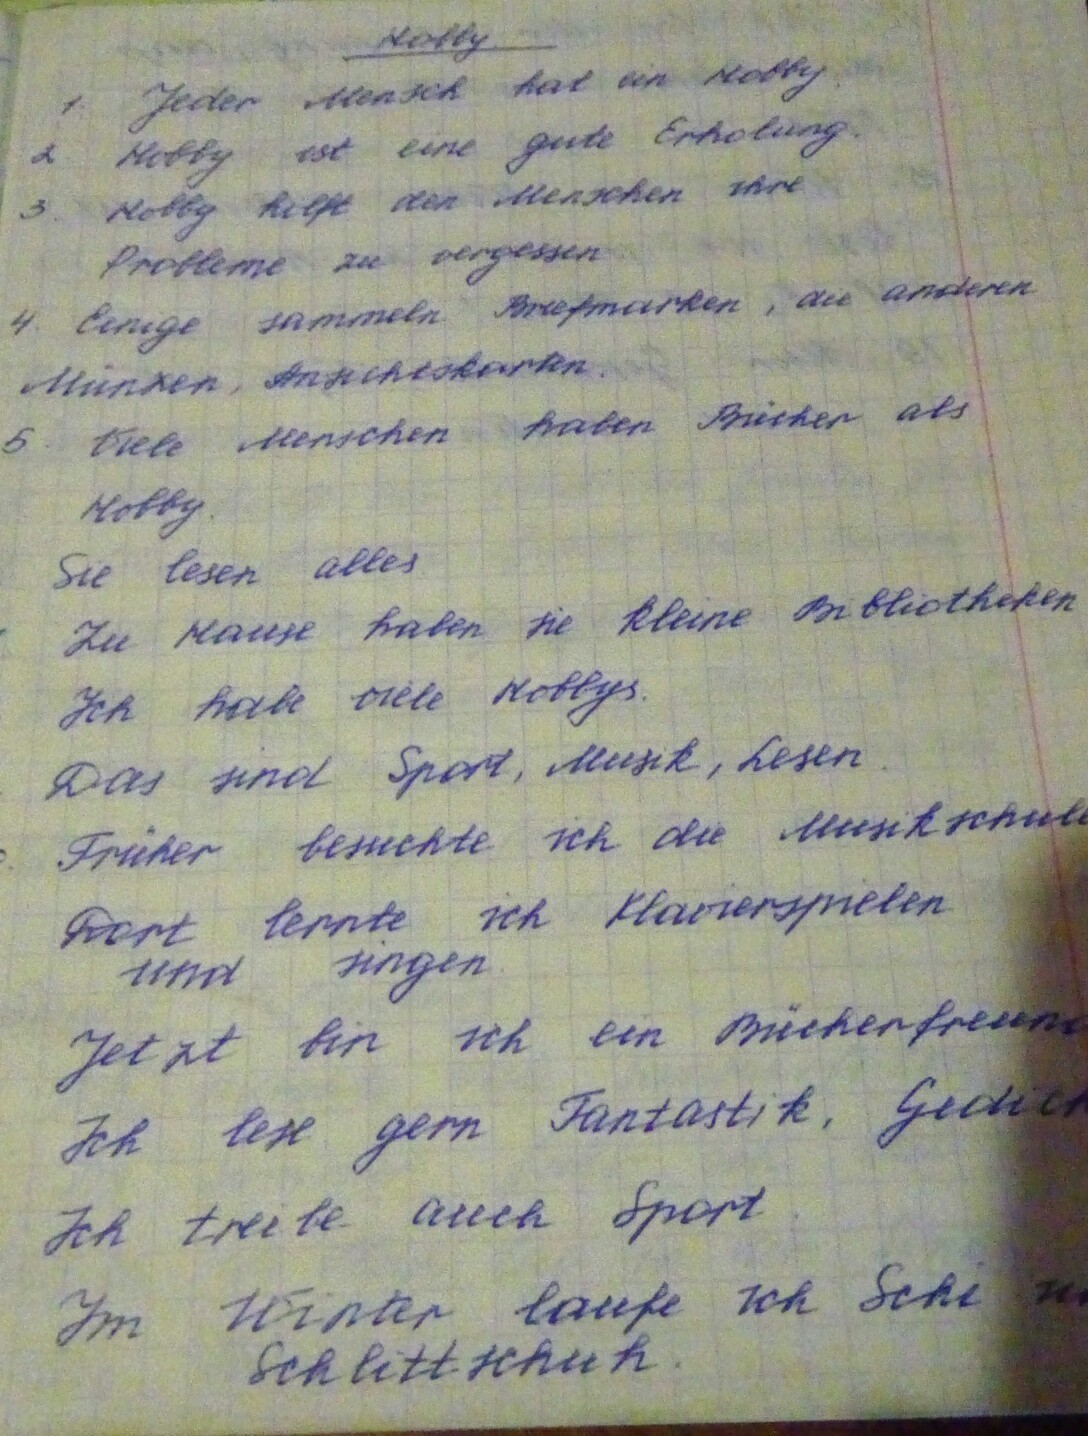 Hobby
1. Jeder Mensch hat ein Hobby.
2. Hobby ist eine gute Erholung.
3. Hobby hilft den Menschen ihre
Probleme zu vergessen
4. Einige sammeln Briefmarken, die anderen
Münzen, Ansichtskarten.
5. Viele Menschen haben Bücher als
Hobby.
Sie lesen alles
Zu Hause haben sie kleine Bibliotheken
Ich habe viele Hobbys.
Das sind Sport, Musik, Lesen.
Früher besuchte ich die Musikschule
Dort lernte ich Klavierspielen
und singen
Jetzt bin ich ein Bücherfreun
Ich lese gern Fantastik, Gedich
Ich treibe auch Sport.
Im Winter laufe ich Schi u
Schlittschuh.